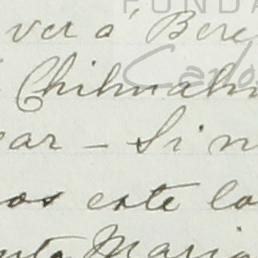 ver a Bere
Chihuahu
ar - Si n
os este lo
nta Maria
FUNDA